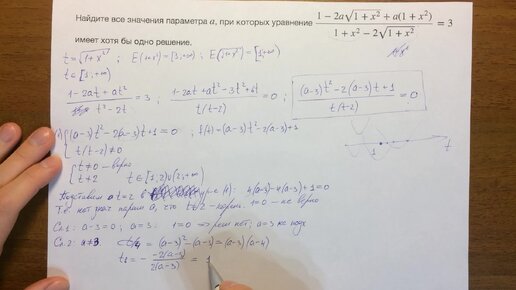 Найдите все значения параметра a, при которых уравнение (1 − 2a√(1 + x²) + a(1 + x²)) / (1 + x² − 2√(1 + x²)) = 3
имеет хотя бы одно решение.
t = √(1+x²) ; E(1+x²) = [1; +∞) ; E(√(1+x²)) = [1; +∞)
t ∈ [1; +∞)
(1 − 2at + at²) / (t² − 2t) = 3 ; (1 − 2at + at² − 3t² + 6t) / (t(t−2)) = 0 ; ((a−3)t² − 2(a−3)t + 1) / (t(t−2)) = 0
{ (a−3)t² − 2(a−3)t + 1 = 0 ; f(t) = (a−3)t² − 2(a−3)t + 1
t(t−2) ≠ 0
{ t ≠ 0 – верно
t ≠ 2 t ∈ [1; 2) ∪ (2; +∞)
1
Подставим t = 2 в : 4(a−3) − 4(a−3) + 1 = 0
Т.е. нет таких a, что t = 2 – корень. 1 = 0 – не верно
Сл.1: a − 3 = 0 ; a = 3: 1 = 0 ⇒ реш. нет ; a = 3 не подх
Сл.2: a ≠ 3 = (a−3)² − (a−3) = (a−3)(a−4)
= − (−2(a−3)) / (2(a−3)) = 1